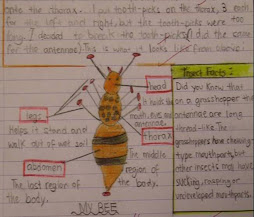 onto the thorax. I put tooth-picks on the thorax, 3 each
for the left and right, but the tooth-picks were too
long. I decided to break the tooth-picks. (I did the same
for the antennae). This is what it looks like from above:
head
It holds the
mouth, eyes and
antennae.
legs
helps it stand and
walk out of wet soil
thorax
The middle
region of
the body.
abdomen
The last region of
the body.
MY BEE
Insect Facts:
Did you know that
on a grasshopper the
antennae are long
thread-like. The
grasshoppers have chewing
type mouthparts, but
other insects may have
sucking, rasping or
undeveloped mouthparts.